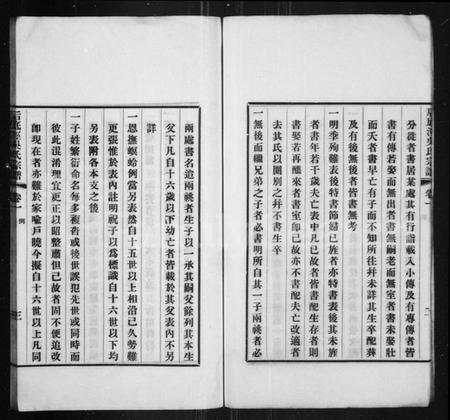 居□□吳氏宗譜
卷一
分徙者書居某處其有行誼載入小傳及有專傳者皆
書有傳若娶而無出者書無嗣老而無室者書未娶壯
而夭者書早亡有子而不知所往并未詳其生卒配葬
及有後無後者皆書無考
一明季殉難表後特書節婦已旌者亦特書表後其未旌
者書守年若干歲夫亡表中凡已故者皆書配生存者則
書娶若再醮來者書室卽已故亦不書配夫亡改適者
去其氏以圈別之并不書生卒
一無後而繼兄弟之子者必書明所自其一子兩祧者必
兩處書名追兩祧者生子以一承其嗣父餘列其本生
父下凡自十六歲以下幼亡者皆載於其父表內不另
詳
一恩撫螟蛉例當另表然自十五世以上相沿已久勢難
更張惟於表內註明祀子以爲標識自十六世以下均
另表附各本支之後
一子姓繁衍命名每多複沓或後世誤犯先世或同時而
彼此混淆理宜更正以昭整肅但已故者固不便追改
卽現在者亦難於家喻戶曉今擬自十六世以上凡同
居□□吳氏宗譜
卷一
例
三